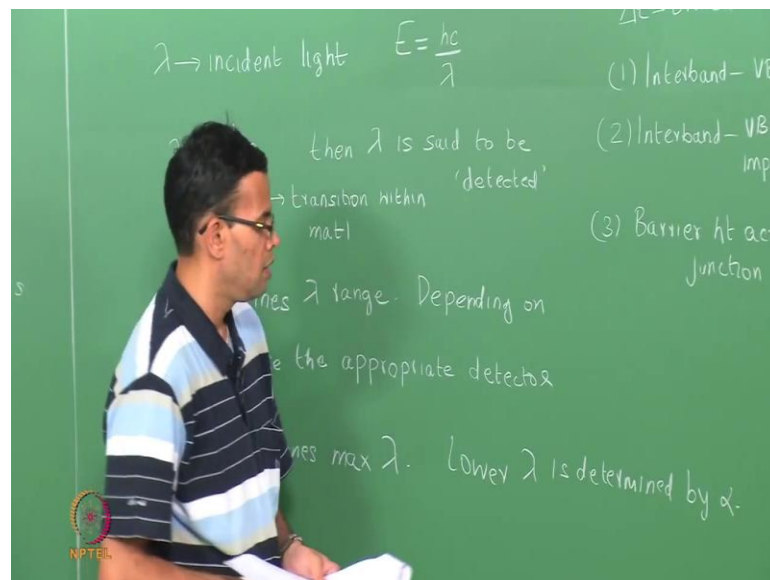 λ → incident light E = hc/λ
then λ is said to be
'detected'
→ transition within
matl
λ range. Depending on
the appropriate detector
max λ. Lower λ is determined by α.
(1) Interband – VB
(2) Interband – VB
imp
(3) Barrier ht ac
junction
s
NPTEL